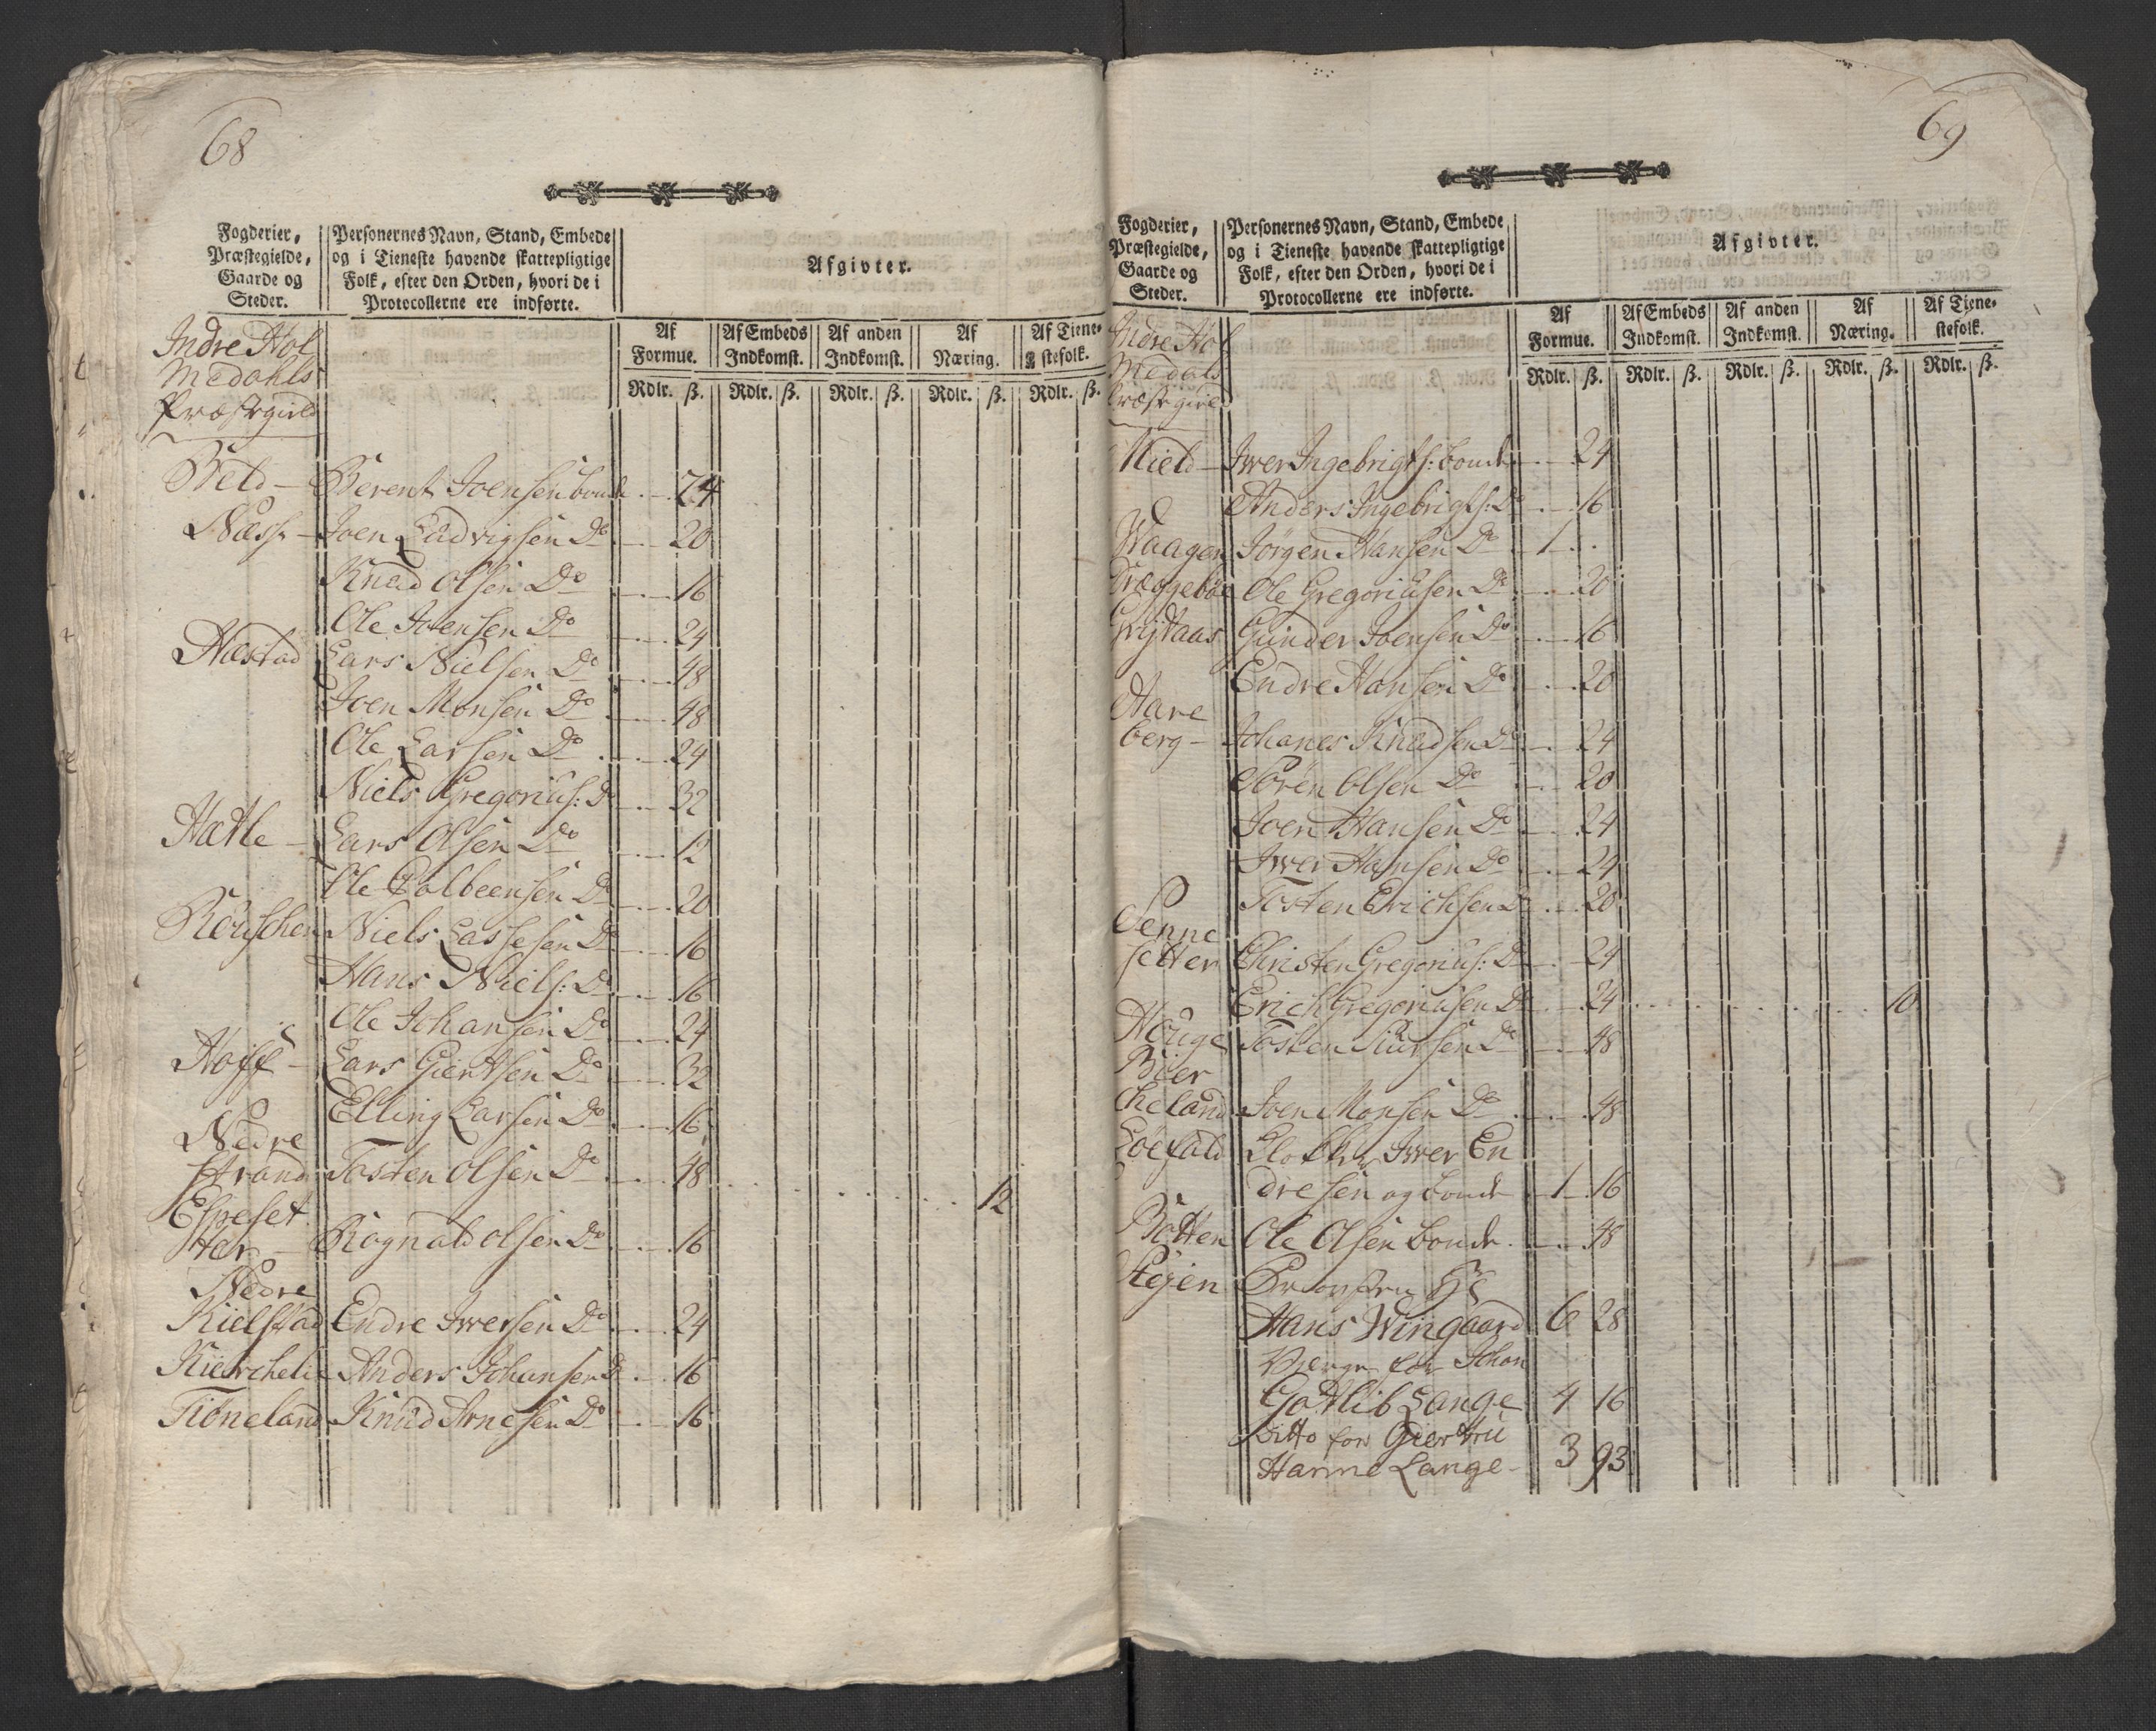 68
Fogderier,
Præstegielde,
Gaarde og
Steder.
Personernes Navn, Stand, Embede
og i Tieneste havende skattepligtige
Folk, efter den Orden, hvori de i
Protocollerne ere indførte.
Afgivter.
Af Formue. Af Embeds Indkomst. Af anden Indkomst. Af Næring. Af Tienestefolk.
Rdlr. ß. Rdlr. ß. Rdlr. ß. Rdlr. ß. Rdlr. ß.
Indre Hol
medahls
Præstegield
Beld - Berent Joensen bonde 24
Næss - Joen Ludvigsen Do 20
Knud Olsen Do 16
Ole Joensen Do 24
Hæstad Lars Nielsen Do 48
Joen Monsen Do 48
Ole Larsen Do 24
Niels Gregorius: Do 32
Hatle - Lars Olsen Do 12
Ole Colbeensen Do 20
Niels Lassesen Do 16
Hans Niels: Do 16
Ole Johansen Do 24
Hoff - Lars Giertsen Do 32
Elling Larsen Do 16
Nedre
strand Tosten Olsen Do 48 12
Espeset
ter - Rognald Olsen Do 16
Nedre
Kielstad Endre Iwersen Do 24
Kierchelie Anders Johansen Do 16
Tiøneland Knud Arnesen Do 16
69
Fogderier,
Præstegielde,
Gaarde og
Steder.
Personernes Navn, Stand, Embede
og i Tieneste havende skattepligtige
Folk, efter den Orden, hvori de i
Protocollerne ere indførte.
Afgivter.
Af Formue. Af Embeds Indkomst. Af anden Indkomst. Af Næring. Af Tienestefolk.
Rdlr. ß. Rdlr. ß. Rdlr. ß. Rdlr. ß. Rdlr. ß.
Indre Hol
medals
Præstegield
Iwer Ingebrigts: bonde 24
Anders Ingebrigts: Do 16
Waagen Jørgen Hansen Do 1
Dræggebøe Ole Gregoriusen Do 20
Gunder Joensen Do 16
Endre Hansen Do 20
Hare
berg - Johanes Knudsen Do 24
Søren Olsen Do 20
Joen Hansen Do 24
Iwer Hansen Do 24
Tosten Erichsen Do 20
Senne
setter Christen Gregorius: Do 24
Erich Gregoriusen Do 24 10
Houge Tosten Siursen Do 48
Bier
cheland Joen Monsen Do 48
Løefald Klokker Iwer En
dresen og bonde 1 16
Botten Ole Olsen bonde 48
Stejen
Hans Wingaard 6 28
Værge for Johan
Gotlib Lange 4 16
Ditto for Giertru
Hanne Lange - 3 93